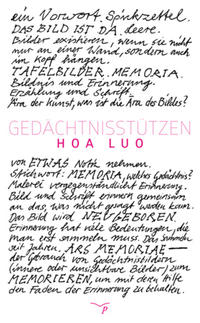 ein Vorwort. Spinkzettel.
DAS BILD IST DA, leere.
Bilder existieren, wenn sie nicht
nur an einer Wand, sondern auch
im Kopf hängen.
TAFELBILDER. MEMORIA.
Bildnis und Erinnerung.
Erzählung und Schrift.
Ära der Kunst, was ist die Ära des Bildes?
GEDÄCHTNISSTÜTZEN
HOA LUO
von ETWAS Notiz nehmen.
Stichwort: MEMORIA, welches Gedächtnis?
Malerei vergegenständlicht Erinnerung.
Bild und Schrift erinnern gemeinsam
an das, was nicht gesagt werden kann.
Das Bild wird NEU GEBOREN.
Erinnerung hat viele Bedeutungen, die
man erst sammeln muss. Das
seit Jahren. ARS MEMORIAE —
der Gebrauch von Gedächtnisbildern
(innere oder unsichtbare Bilder) zum
MEMORIEREN, um mit deren Hilfe
den Faden der Erinnerung zu behalten.